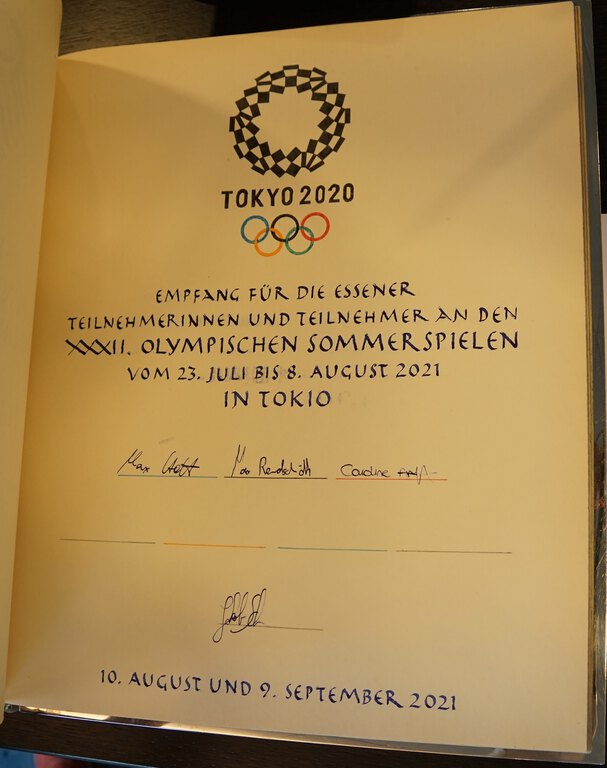 TOKYO 2020
EMPFANG FÜR DIE ESSENER
TEILNEHMERINNEN UND TEILNEHMER AN DEN
XXXII. OLYMPISCHEN SOMMERSPIELEN
VOM 23. JULI BIS 8. AUGUST 2021
IN TOKIO
Max Max Rendschmidt Caroline
10. AUGUST UND 9. SEPTEMBER 2021